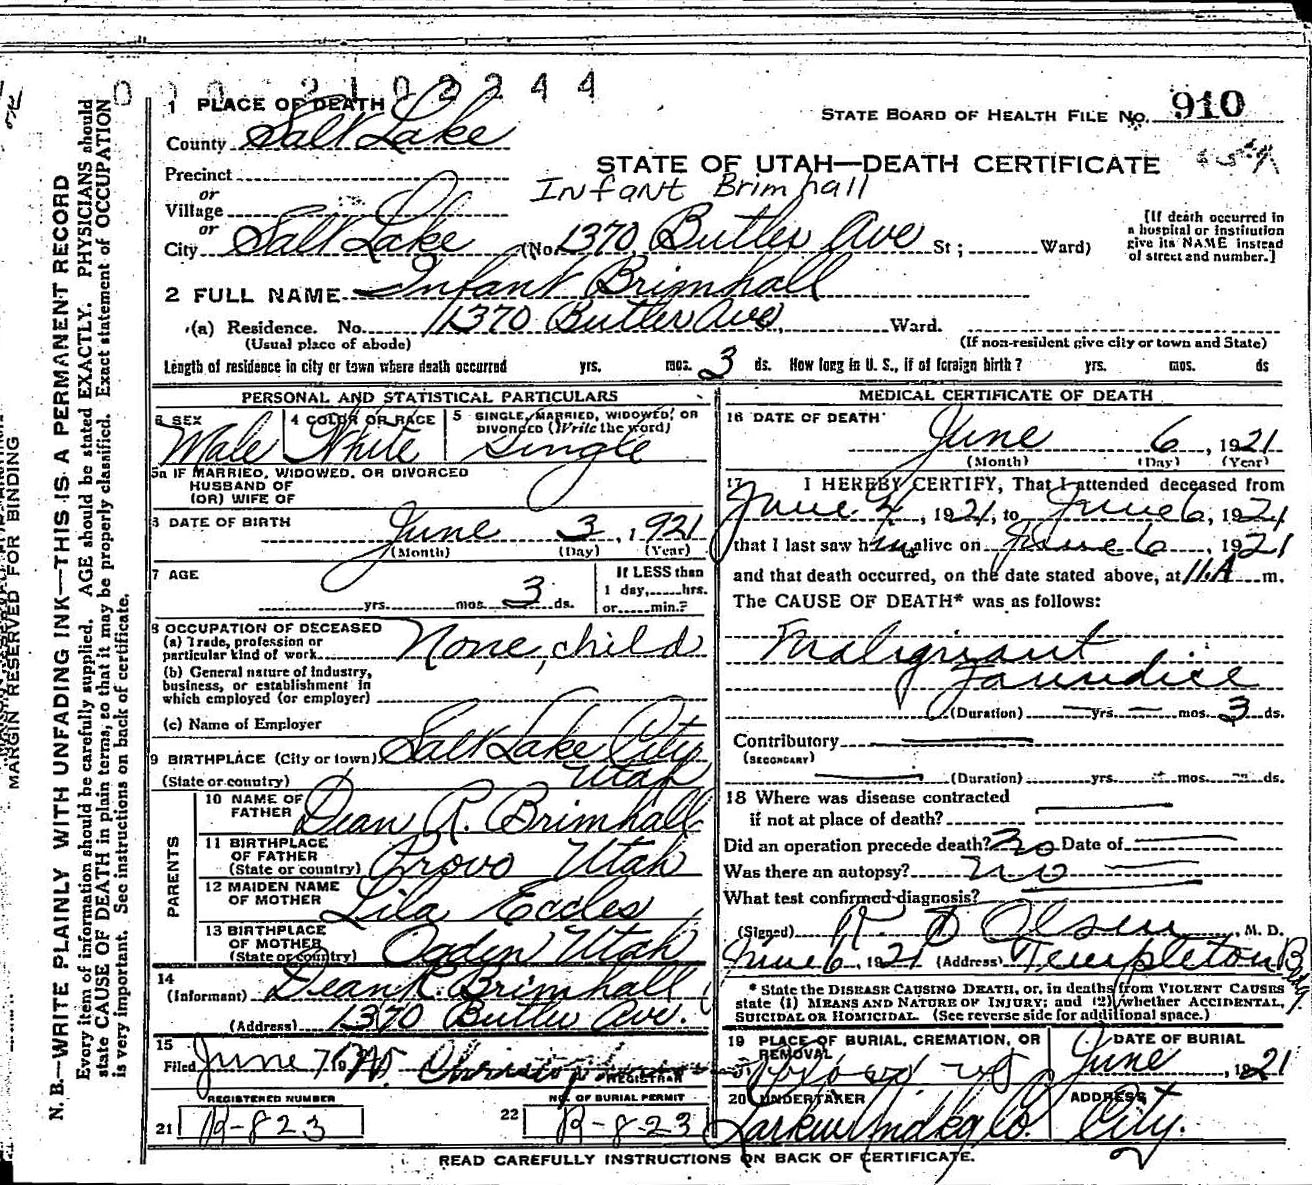 0 0 0 2 1 0 2 2 4 4
1 PLACE OF DEATH
STATE BOARD OF HEALTH FILE No. 910
County Salt Lake
STATE OF UTAH—DEATH CERTIFICATE
Precinct
or
Infant Brimhall
Village
or
City Salt Lake (No. 1370 Butler Ave St; Ward)
[If death occurred in
a hospital or institution
give its NAME instead
of street and number.]
2 FULL NAME Infant Brimhall
(a) Residence. No. 1370 Butler Ave, Ward.
(Usual place of abode) (If non-resident give city or town and State)
Length of residence in city or town where death occurred yrs. mos. 3 ds. How long in U. S., if of foreign birth? yrs. mos. ds
PERSONAL AND STATISTICAL PARTICULARS
3 SEX
Male
4 COLOR OR RACE
White
5 SINGLE, MARRIED, WIDOWED, OR
DIVORCED (Write the word)
Single
5a IF MARRIED, WIDOWED, OR DIVORCED
HUSBAND OF
(OR) WIFE OF
DATE OF BIRTH June 3, 1921
(Month) (Day) (Year)
7 AGE
yrs. mos. 3 ds.
If LESS than
1 day, hrs.
or min.?
8 OCCUPATION OF DECEASED
(a) Trade, profession or
particular kind of work None, child
(b) General nature of industry,
business, or establishment in
which employed (or employer)
(c) Name of Employer
9 BIRTHPLACE (City or town) Salt Lake City
(State or country) Utah
PARENTS
10 NAME OF
FATHER Dean R. Brimhall
11 BIRTHPLACE
OF FATHER
(State or country) Provo Utah
12 MAIDEN NAME
OF MOTHER Lila Eccles
13 BIRTHPLACE
OF MOTHER
(State or country) Ogden Utah
14
(Informant) Dean R. Brimhall
(Address) 1370 Butler Ave.
15
Filed June 7 19 W.
REGISTRAR
REGISTERED NUMBER
21 R-823
NO. OF BURIAL PERMIT
22 R-823
MEDICAL CERTIFICATE OF DEATH
16 DATE OF DEATH
June 6, 1921
(Month) (Day) (Year)
17 I HEREBY CERTIFY, That I attended deceased from
June 4, 1921, to June 6, 1921
that I last saw him alive on June 6, 1921
and that death occurred, on the date stated above, at 11.A m.
The CAUSE OF DEATH* was as follows:
Malignant
Jaundice
(Duration) yrs. mos. 3 ds.
Contributory
(SECONDARY)
(Duration) yrs. mos. ds.
18 Where was disease contracted
if not at place of death?
Did an operation precede death? No Date of
Was there an autopsy? No
What test confirmed diagnosis?
(Signed) Olsen, M. D.
June 6, 1921 (Address) Templeton Bldg.
* State the DISEASE CAUSING DEATH, or, in deaths from VIOLENT CAUSES
state (1) MEANS AND NATURE OF INJURY; and (2) whether ACCIDENTAL,
SUICIDAL OR HOMICIDAL. (See reverse side for additional space.)
19 PLACE OF BURIAL, CREMATION, OR
REMOVAL
DATE OF BURIAL
June, 1921
20 UNDERTAKER
Larkin Undkg Co.
ADDRESS
City.
READ CAREFULLY INSTRUCTIONS ON BACK OF CERTIFICATE.
MARGIN RESERVED FOR BINDING
N. B.—WRITE PLAINLY WITH UNFADING INK—THIS IS A PERMANENT RECORD
Every item of information should be carefully supplied. AGE should be stated EXACTLY. PHYSICIANS should
state CAUSE OF DEATH in plain terms, so that it may be properly classified. Exact statement of OCCUPATION
is very important. See instructions on back of certificate.